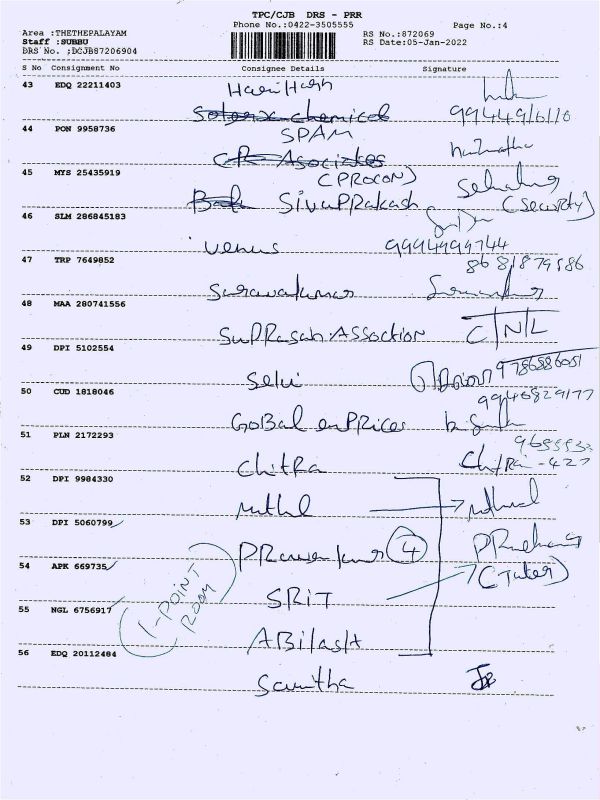 TPC/CJB DRS - PRR
Phone No.:0422-3505555 Page No.:4
Area :THETHEPALAYAM RS No.:872069
Staff :SUBBU RS Date:05-Jan-2022
DRS No. ;DCJB87206904
S No Consignment No Consignee Details Signature
43 EDQ 22211403
Hari Hash
Solonx chemical 9944916110
44 PON 9958736
SPAM
CR Asociates
45 MYS 25435919
(PROCON)
SivaPRakash (Security)
46 SLM 286845183
Venus 9994999744
47 TRP 7649852 8681879586
Saravakumar
48 MAA 280741556
SupRasan Assoction C/N/L
49 DPI 5102554
9786886051
Selvi
50 CUD 1818046 9946829177
GoBal enPrices
51 PLN 2172293
ChitRa Chitra - 427
52 DPI 9984330
Mithil
53 DPI 5060799
PRavenkumar 4
54 APK 669735
SRIT
1-POINT ROOM
55 NGL 6756917
ABilash
56 EDQ 20112484
Savitha